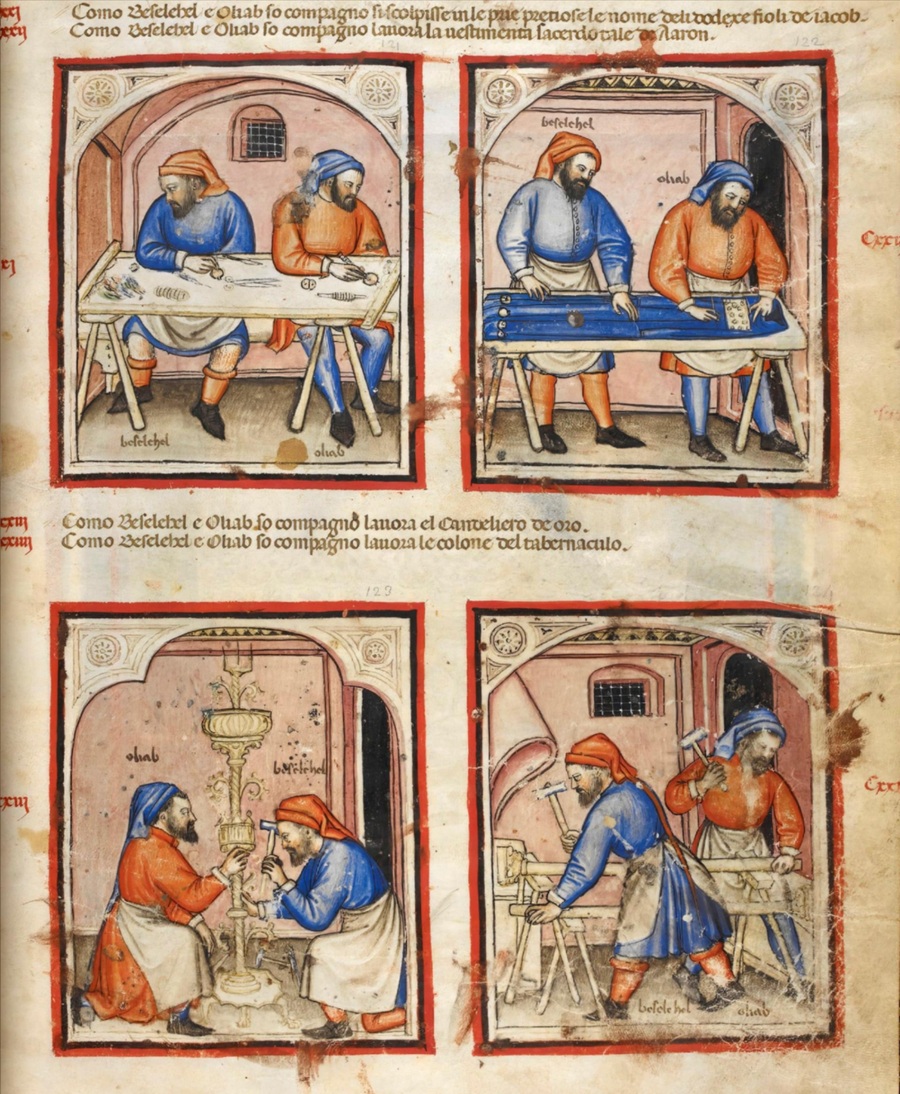 Como Beselehel e Oliab so compagno si scolpisse in le prie pretiose le nome deli dodexe fioli de iacob.
Como Beselehel e Oliab so compagno lauora la uestimenta sacerdotale de Aaron.
121
122
beselehel
oliab
beselehel
oliab
Como Beselehel e Oliab so compagno lauora el Candeliero de oro.
Como Beselehel e Oliab so compagno lauora le colone del tabernaculo.
123
124
oliab
beselehel
beselehel
oliab